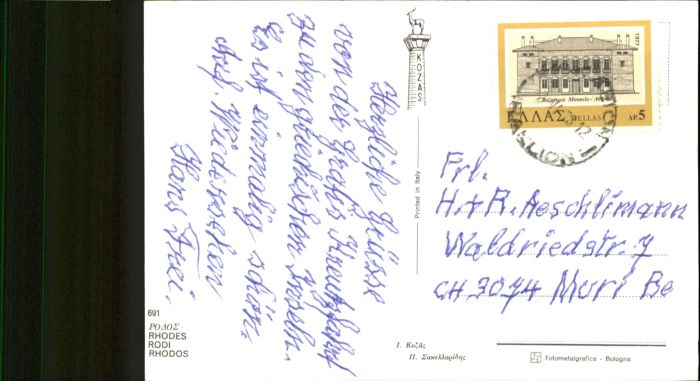 Herzliche Grüsse
von der Gratis Kreuzfahrt
zu den griechischen Inseln.
Es ist einmalig schön.
Auf Wiedersehen
Hans Frei.
691
ΡΟΔΟΣ·
RHODES
RODI
RHODOS
KOZAS
Printed in Italy
1977
Βυζαντινό Μουσείο
ΕΛΛΑΣ HELLAS ΔΡ.5
Frl.
H.+R. Aeschlimann
Waldriedstr. 7
CH 3074 Muri Be
Ι. Κοζᾶς
Π. Σακελλαρίδης
Fotometalgrafica - Bologna